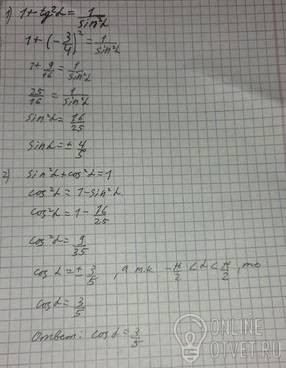 1) 1 + tg²α = 1/sin²α
1 + (-3/4)² = 1/sin²α
1 + 9/16 = 1/sin²α
25/16 = 1/sin²α
sin²α = 16/25
sin α = ± 4/5
2) sin²α + cos²α = 1
cos²α = 1 - sin²α
cos²α = 1 - 16/25
cos²α = 9/35
cos α = ± 3/5, а т.к. -π/2 < α < π/2, то
cos α = 3/5
Ответ: cos α = 3/5
ONLINE
OTVET.RU